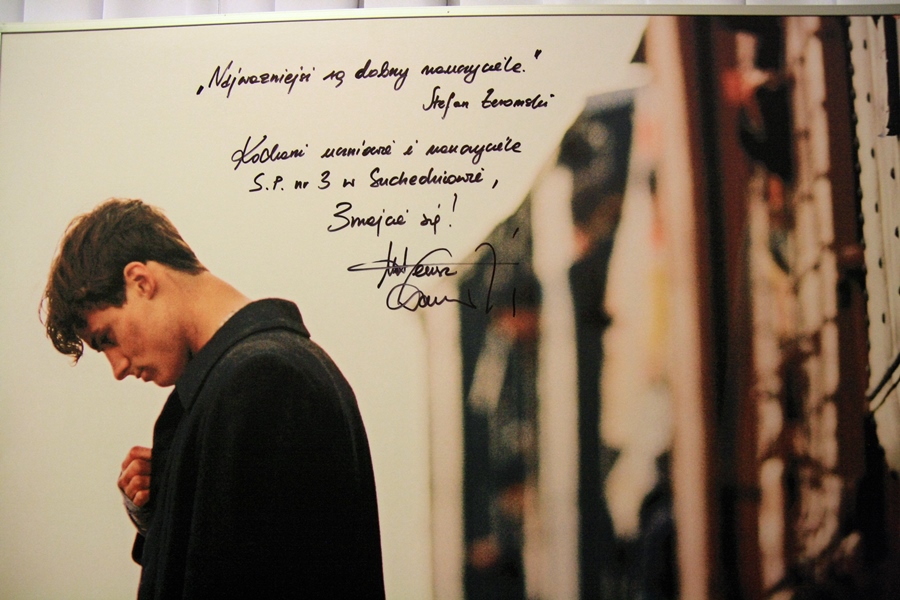 „Najważniejsi są dobrzy nauczyciele."
Stefan Żeromski
Kochani uczniowie i nauczyciele
S.P. nr 3 w Suchedniowie,
3majcie się!